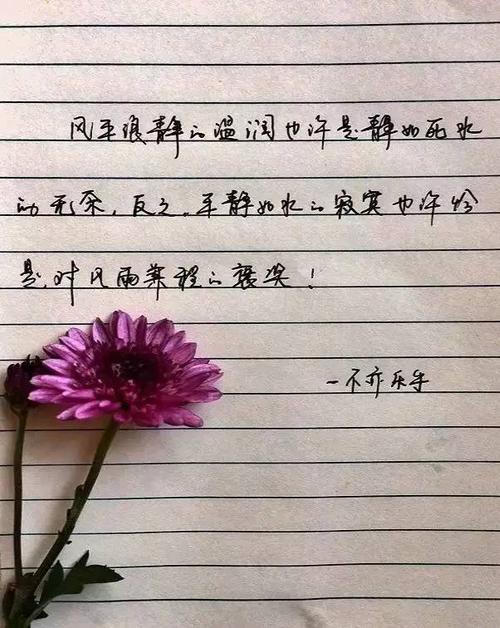 风平浪静的温润也许是静如死水
的无奈，反之，平静如水的寂寞也许恰
是对风雨兼程的褒奖！
—不亦乐乎